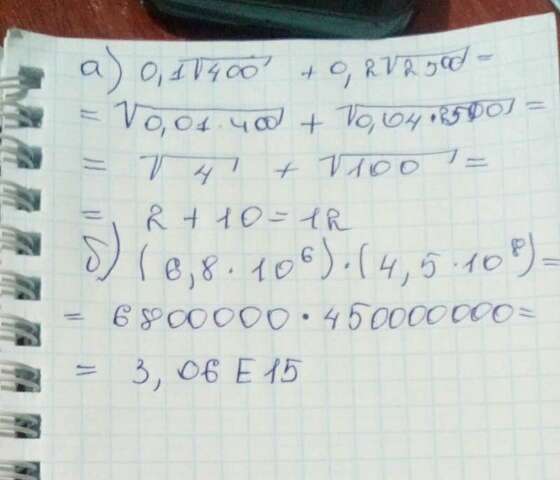 а) 0,1√400 + 0,2√2500 =
= √0,01·400 + √0,04·2500 =
= √4 + √100 =
= 2 + 10 = 12
б) (6,8·10⁶)·(4,5·10⁸) =
= 6800000·450000000 =
= 3,06E15